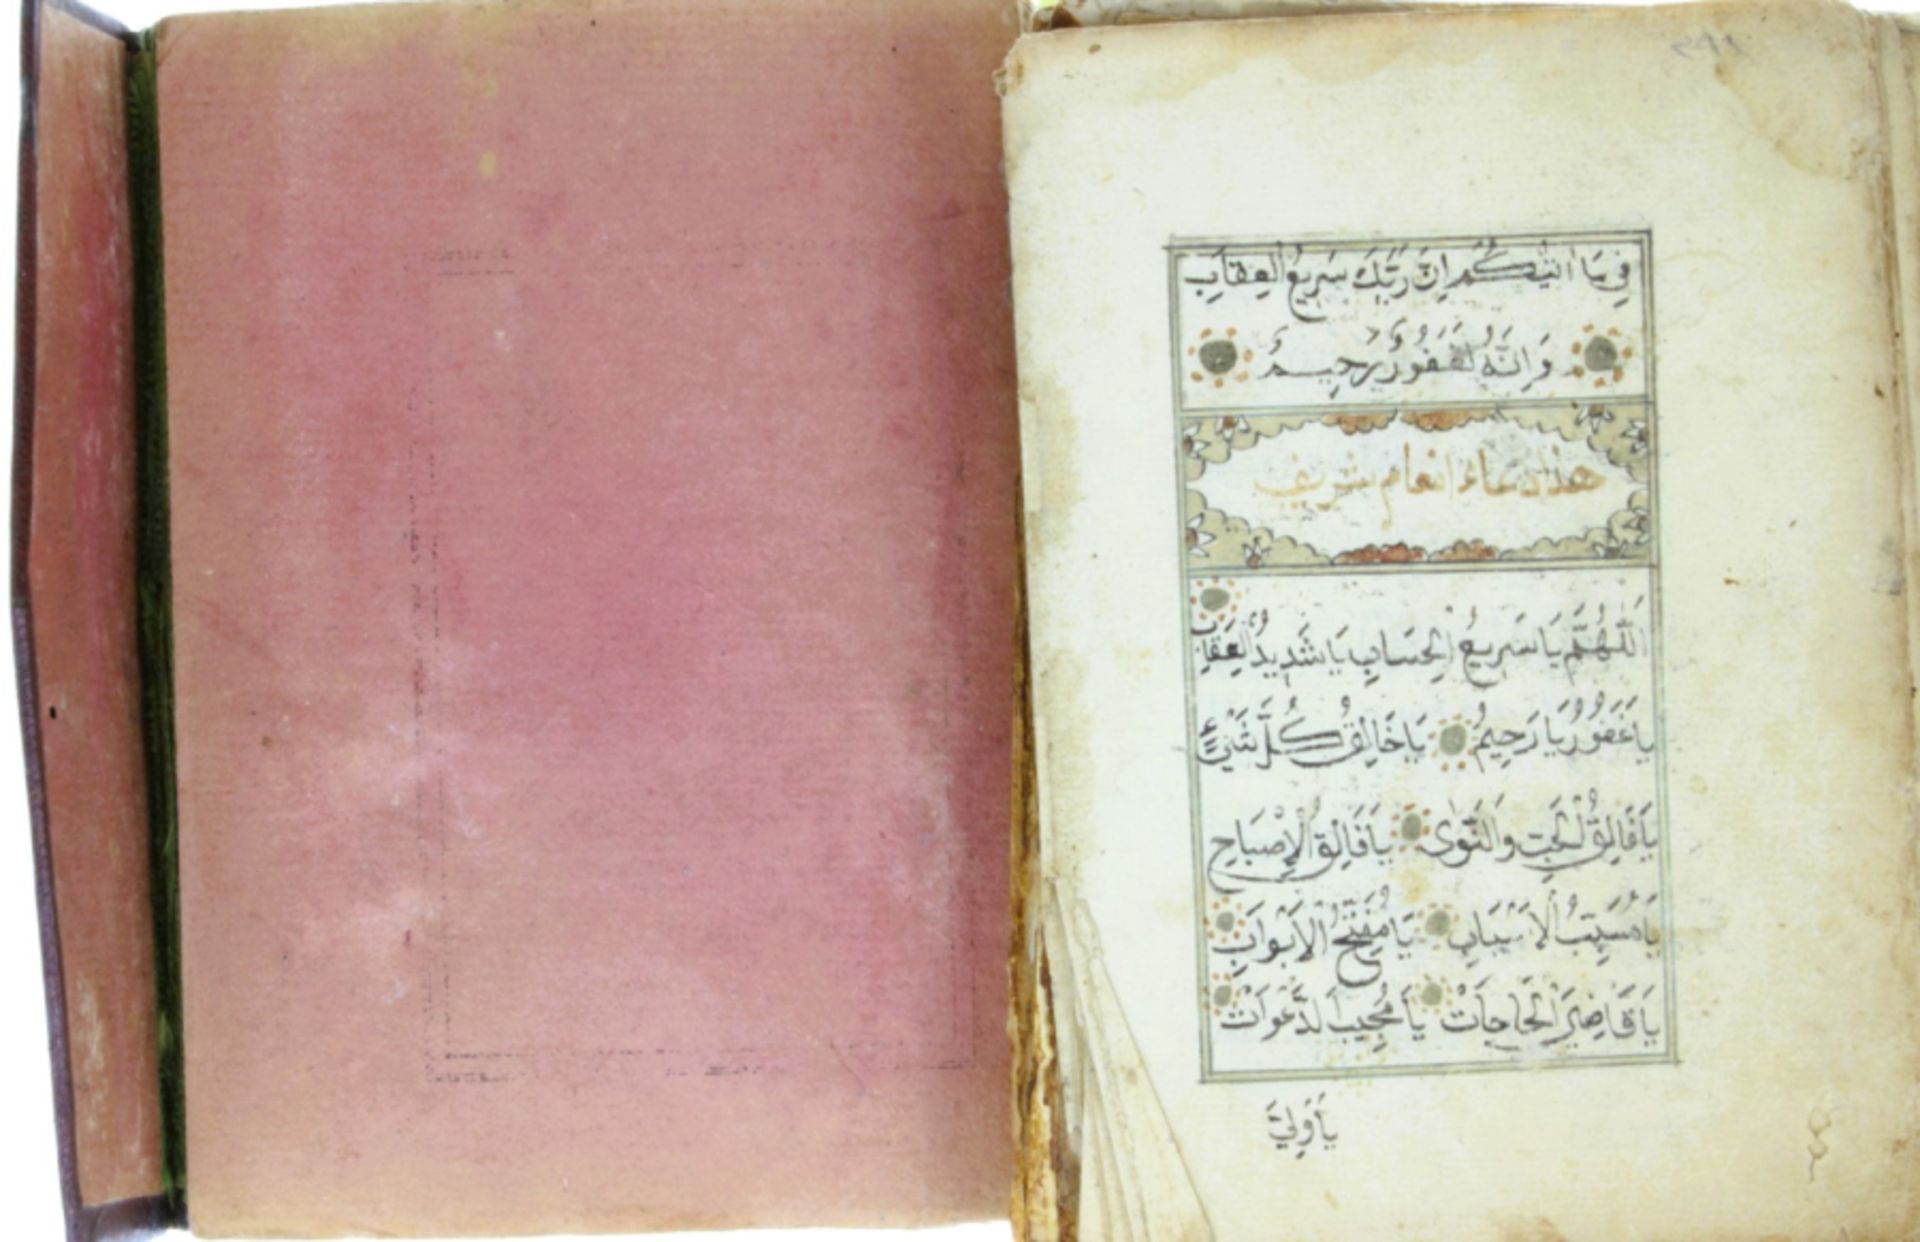 فِي مَا اٰتٰيكُمْ اِنَّ رَبَّكَ سَرِيعُ الْعِقَابِ
وَاِنَّهُ لَغَفُورٌ رَحِيمٌ
هذا دعاء انعام شريف
اَللّٰهُمَّ يَا سَرِيعُ الْحِسَابِ يَا شَدِيدُ الْعِقَابِ
يَا غَفُورُ يَا رَحِيمُ يَا خَالِقُ كُلِّ شَيْءٍ
يَا فَالِقُ الْحَبِّ وَالنَّوٰى يَا فَالِقُ الْاِصْبَاحِ
يَا مُسَبِّبُ الْاَسْبَابِ يَا مُفَتِّحُ الْاَبْوَابِ
يَا قَاضِيَ الْحَاجَاتْ يَا مُجِيبَ الدَّعَوَاتْ
يَا وَلِيَّ